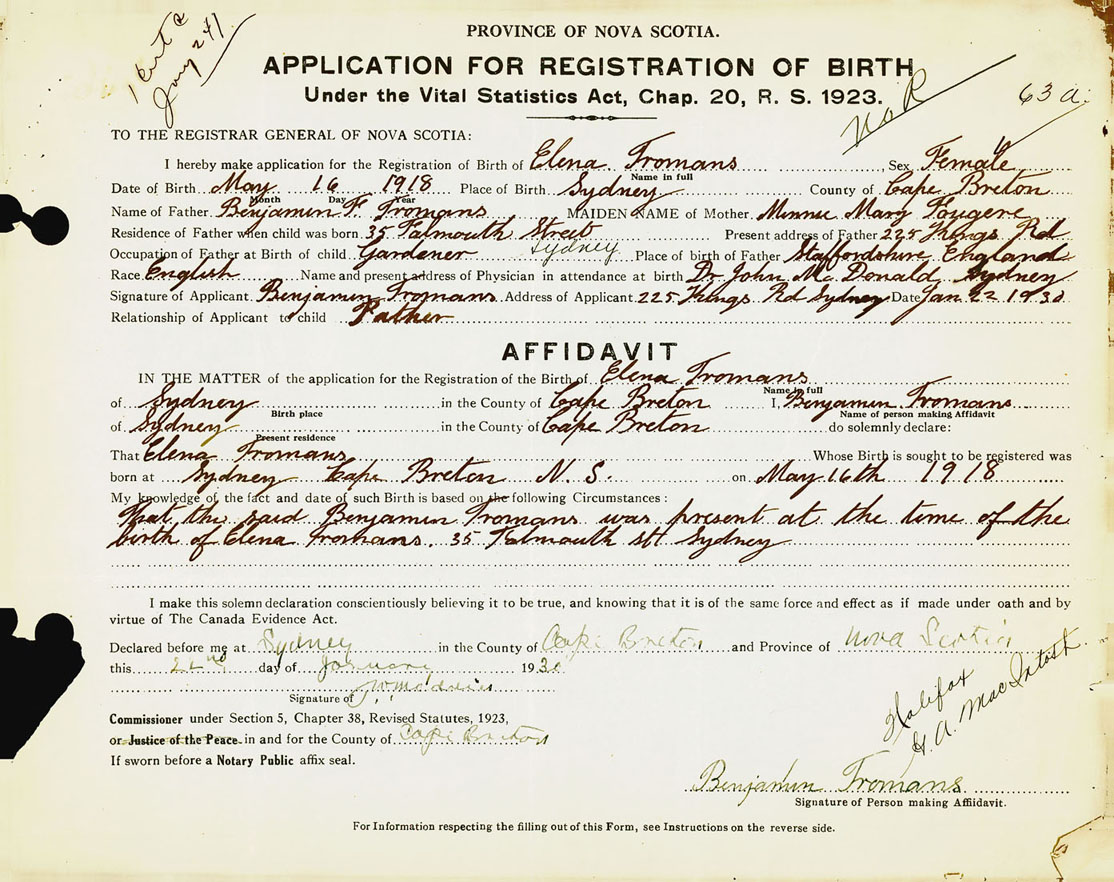 1 Cert @
Jany 24/
PROVINCE OF NOVA SCOTIA.
APPLICATION FOR REGISTRATION OF BIRTH
Under the Vital Statistics Act, Chap. 20, R. S. 1923.
NoR
63 a.
TO THE REGISTRAR GENERAL OF NOVA SCOTIA:
I hereby make application for the Registration of Birth of Elena Tromans, Sex Female
Name in full
Date of Birth May 16 1918 Place of Birth Sydney County of Cape Breton
Month Day Year
Name of Father Benjamin F. Tromans MAIDEN NAME of Mother. Minnie Mary Fougere
Residence of Father when child was born 35 Falmouth Street Present address of Father 225 Kings Rd
Occupation of Father at Birth of child Gardener Sydney Place of birth of Father Staffordshire England
Race English Name and present address of Physician in attendance at birth Dr John McDonald Sydney
Signature of Applicant Benjamin Tromans Address of Applicant 225 Kings Rd Sydney Date Jan 22 1930
Relationship of Applicant to child Father
AFFIDAVIT
IN THE MATTER of the application for the Registration of the Birth of Elena Tromans
Name in full
of Sydney in the County of Cape Breton I, Benjamin Tromans
Birth place Name of person making Affidavit
of Sydney in the County of Cape Breton do solemnly declare:
Present residence
That Elena Tromans Whose Birth is sought to be registered was
born at Sydney Cape Breton N. S. on May 16th 1918
My knowledge of the fact and date of such Birth is based on the following Circumstances :
That the said Benjamin Tromans was present at the time of the
birth of Elena Tromans. 35 Falmouth stt Sydney
I make this solemn declaration conscientiously believing it to be true, and knowing that it is of the same force and effect as if made under oath and by
virtue of The Canada Evidence Act.
Declared before me at Sydney in the County of Cape Breton and Province of Nova Scotia
this 22nd day of January 1930
Signature of
Commissioner under Section 5, Chapter 38, Revised Statutes, 1923,
or Justice of the Peace in and for the County of Cape Breton
If sworn before a Notary Public affix seal.
Halifax
G. A. MacIntosh
Benjamin Tromans
Signature of Person making Affidavit.
For Information respecting the filling out of this Form, see Instructions on the reverse side.